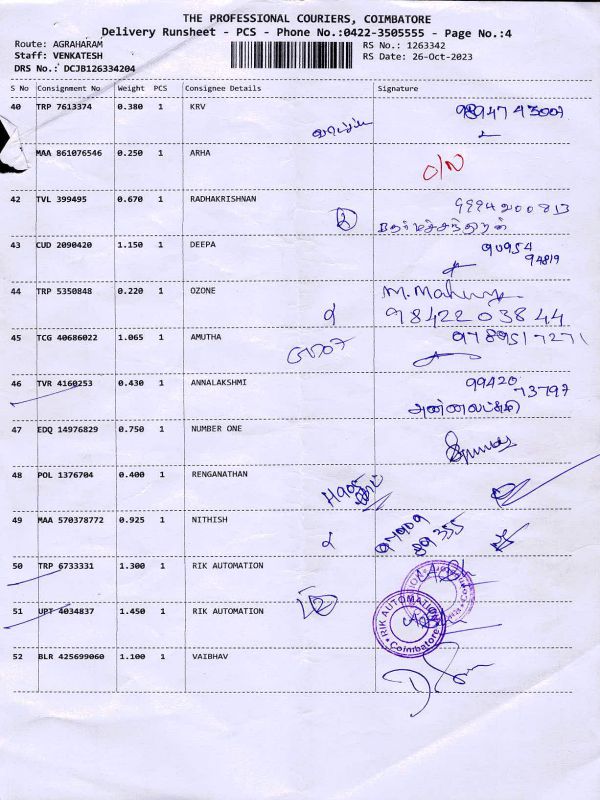 THE PROFESSIONAL COURIERS, COIMBATORE
Delivery Runsheet - PCS - Phone No.:0422-3505555 - Page No.:4
Route: AGRAHARAM
RS No.: 1263342
Staff: VENKATESH
RS Date: 26-Oct-2023
DRS No.: DCJB126334204
S No Consignment No Weight PCS Consignee Details Signature
40 TRP 7613374 0.380 1 KRV
MAA 861076546 0.250 1 ARHA
O/N
42 TVL 399495 0.670 1 RADHAKRISHNAN
9994200813
43 CUD 2090420 1.150 1 DEEPA
90954
94819
44 TRP 5350848 0.220 1 OZONE
9842203844
45 TCG 40686022 1.065 1 AMUTHA 9789517271
46 TVR 4160253 0.430 1 ANNALAKSHMI
99420
73797
அன்னலட்சுமி
47 EDQ 14976829 0.750 1 NUMBER ONE
48 POL 1376704 0.400 1 RENGANATHAN
49 MAA 570378772 0.925 1 NITHISH
50 TRP 6733331 1.300 1 RIK AUTOMATION
51 UPT 4034837 1.450 1 RIK AUTOMATION
RIK AUTOMATION
Coimbatore
52 BLR 425699060 1.100 1 VAIBHAV